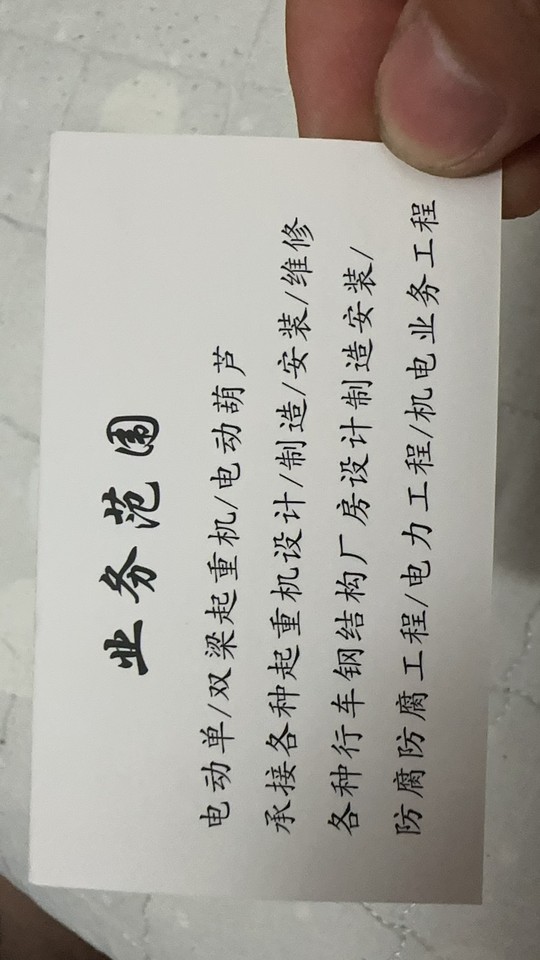 业务范围
电动单/双梁起重机/电动葫芦
承接各种起重机设计/制造/安装/维修
各种行车钢结构厂房设计制造安装/
防腐防腐工程/电力工程/机电业务工程